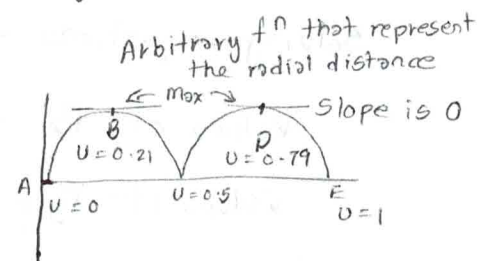 Arbitrary fn that represent
the radial distance
← Max →
Slope is 0
B
D
U = 0.21
U = 0.79
A
U = 0
U = 0.5
E
U = 1